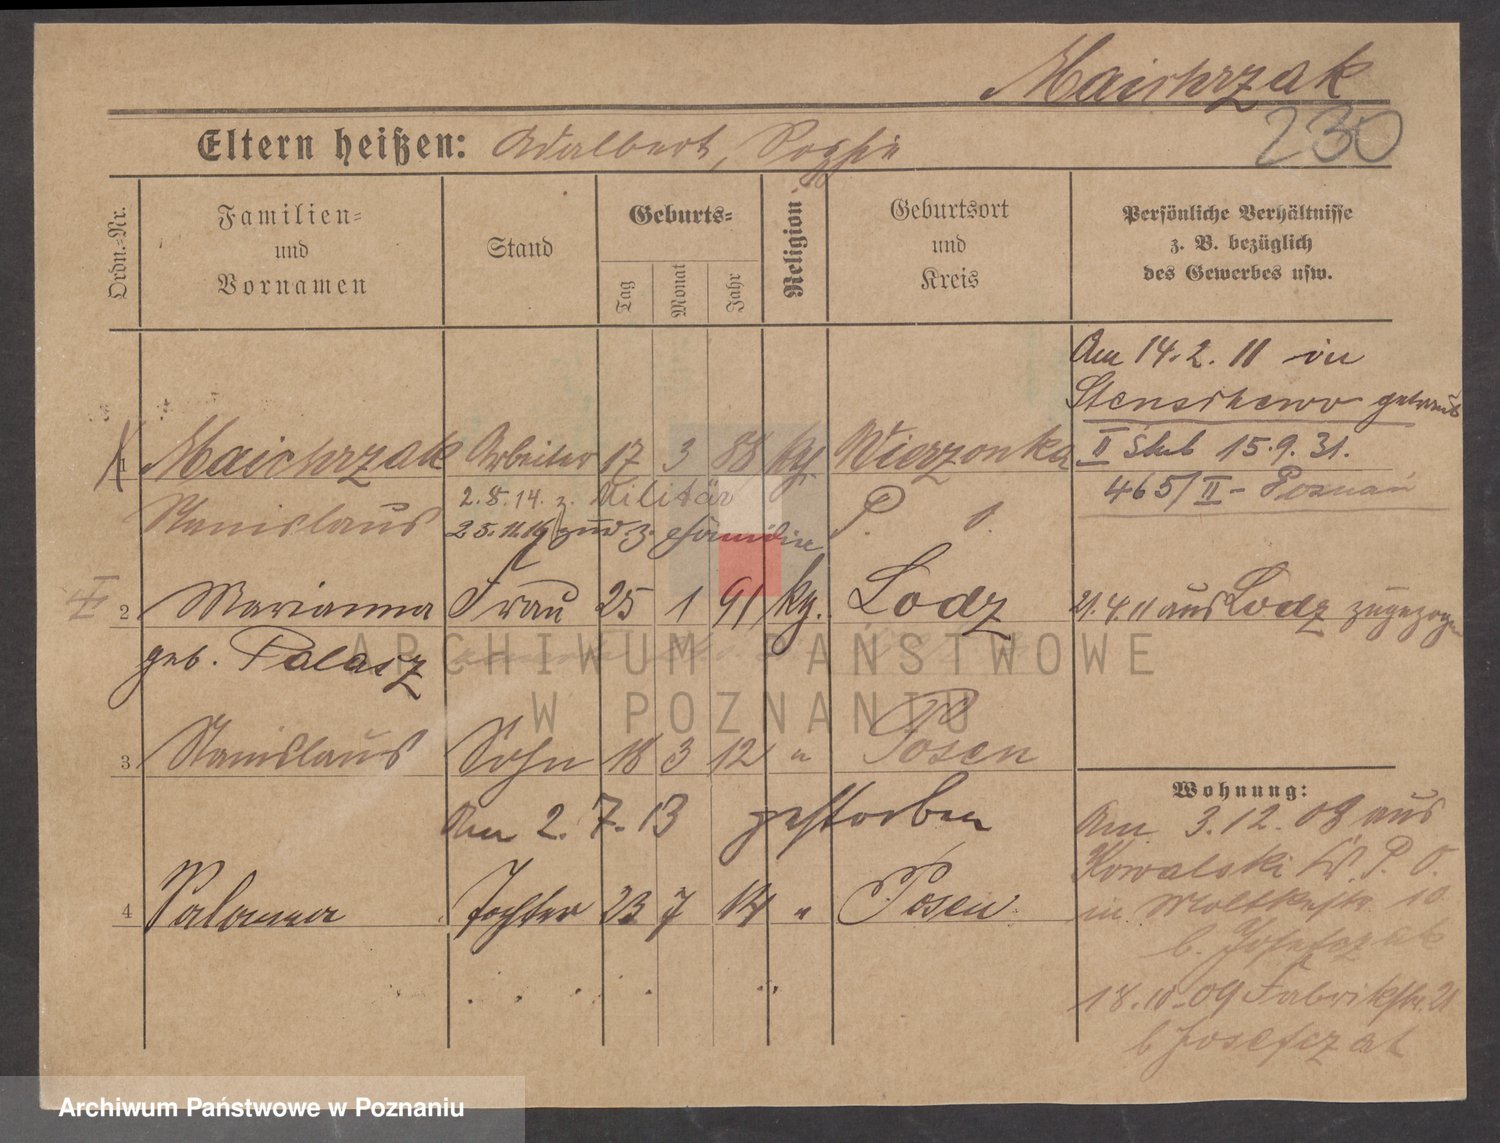 Maichrzak
230
Eltern heißen: Adalbert, Sophie
Ordn.=Nr.
Familien=
und
Vornamen
Stand
Geburts=
Tag
Monat
Jahr
Religion
Geburtsort
und
Kreis
Persönliche Verhältnisse
z. B. bezüglich
des Gewerbes usw.
Am 14.2.11 in
Stenschewo getraut
1 Maichrzak Arbeiter 17 3 88 kg. Wierzonka
II 15.9.31.
465/II - Poznań
Stanislaus 2.8.14. z. Militär P. O.
25.11.19 zur z. Familie
2 Marianna Frau 25 1 91 kg. Lodz
21.4.11 aus Lodz zugezogen
geb. Palasz
3 Stanislaus Sohn 18 3 12 " Posen
Am 2.7.13 gestorben
4 Salomea Tochter 23 7 14 " Posen
Wohnung:
Am 3.12.08 aus
Kowalski Kr. P. O.
in Moltkestr 10
b. Josefczak
18.10.09 Fabrikstr. 21
b Josefczak
ARCHIWUM PAŃSTWOWE
W POZNANIU
Archiwum Państwowe w Poznaniu